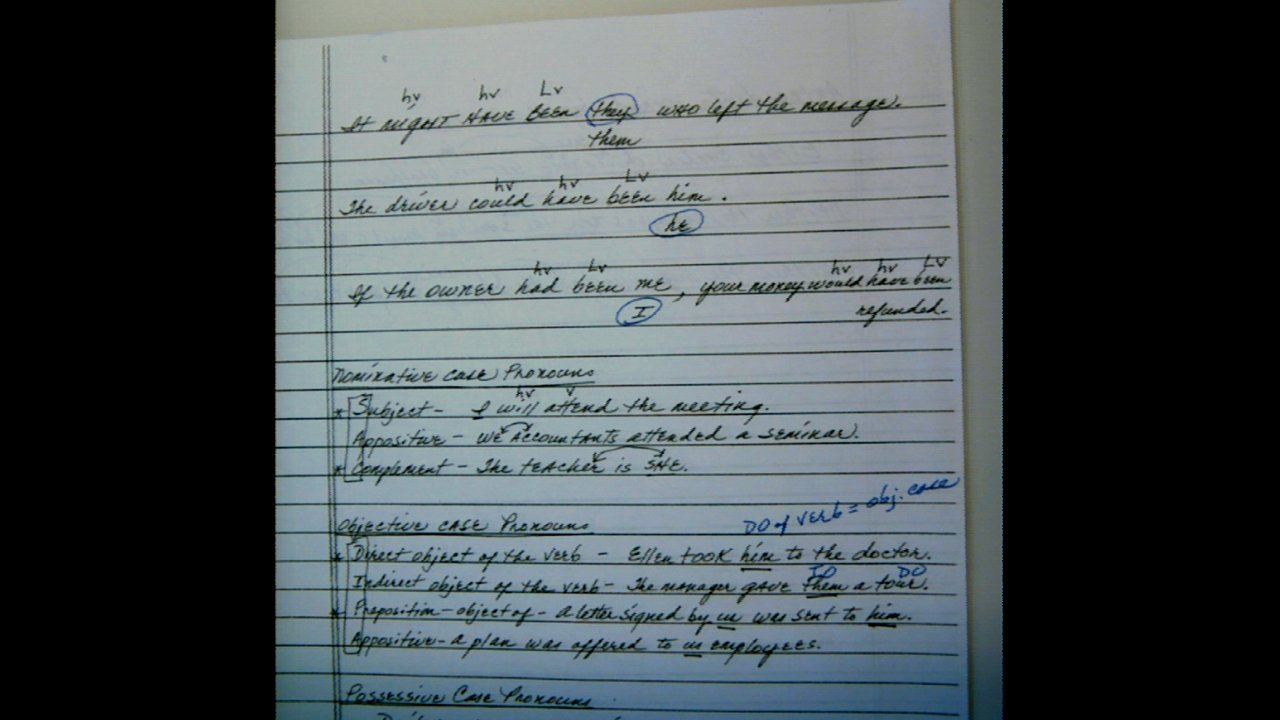 hv hv Lv
It might HAVE BEEN they who left the message.
them
hv hv Lv
The driver could have been him.
he
hv Lv hv hv Lv
If the owner had been me, your money would have been
I refunded.
Nominative Case Pronouns
hv v
* Subject - I will attend the meeting.
Appositive - We Accountants attended a seminar.
* Complement - The teacher is SHE.
DO of verb = obj. case
Objective Case Pronouns
* Direct object of the verb - Ellen took him to the doctor.
IO DO
Indirect object of the verb - The manager gave them a tour.
* Preposition - object of - A letter signed by us was sent to him.
Appositive - A plan was offered to us employees.
Possessive Case Pronouns